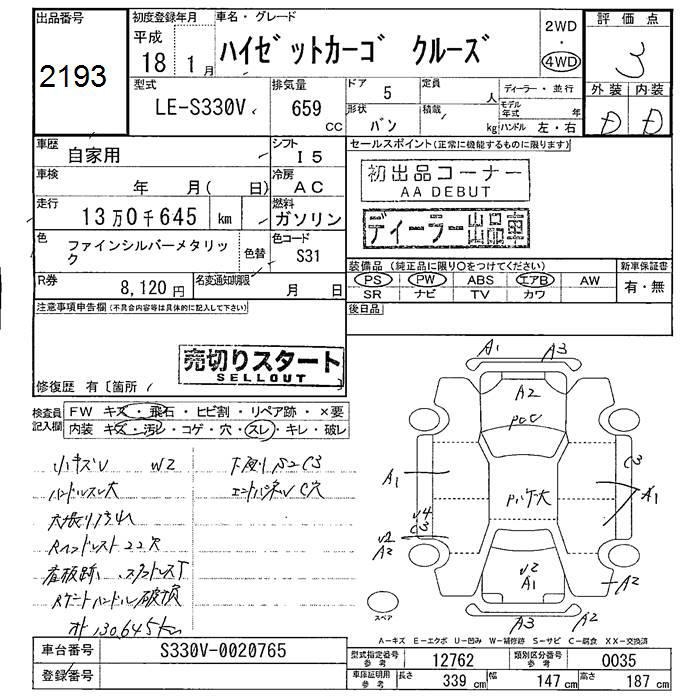 出品番号
2193
初度登録年月
平成
18 1月
車名・グレード
ハイゼットカーゴ クルーズ
2WD
・
4WD
評価点
3
外装 内装
D D
型式
LE-S330V
排気量
659 CC
ドア 5
形状 バン
定員 人
積載 kg
ディーラー・並行
モデル年式 年
ハンドル 左・右
車歴 自家用
シフト I5
車検 年 月( 日)
冷房 AC
走行 13万0千645 km
燃料 ガソリン
色 ファインシルバーメタリック
色替
色コード S31
R券 8,120円
名変通知期限 月 日
セールスポイント(正常に機能するものに限ります)
初出品コーナー
AA DEBUT
ディーラー出品車
装備品 (純正品に限り○をつけてください)
新車保証書
PS PW ABS エアB AW
SR ナビ TV カワ
有・無
後日品
注意事項申告欄(不具合内容等は具体的に記入して下さい)
売切りスタート
SELLOUT
修復歴 有〔箇所
検査員記入欄
FW キズ・飛石・ヒビ割・リペア跡・×要
内装 キズ・汚レ・コゲ・穴・スレ・キレ・破レ
小キズV W2
ハンドルスレ大
下廻りS2C3
130,645km
A1 A3
A2
PCC
A1
C3
A1
V4
C3
V2
A2
V2
A1
A2
A3 A2
スペア
A-キズ E-エクボ U-凹み W-補修跡 S-サビ C-腐食 XX-交換済
車台番号 S330V-0020765
登録番号
型式指定番号 参考 12762
類別区分番号 参考 0035
車庫証明用 参考
長さ 339 cm
幅 147 cm
高さ 187 cm